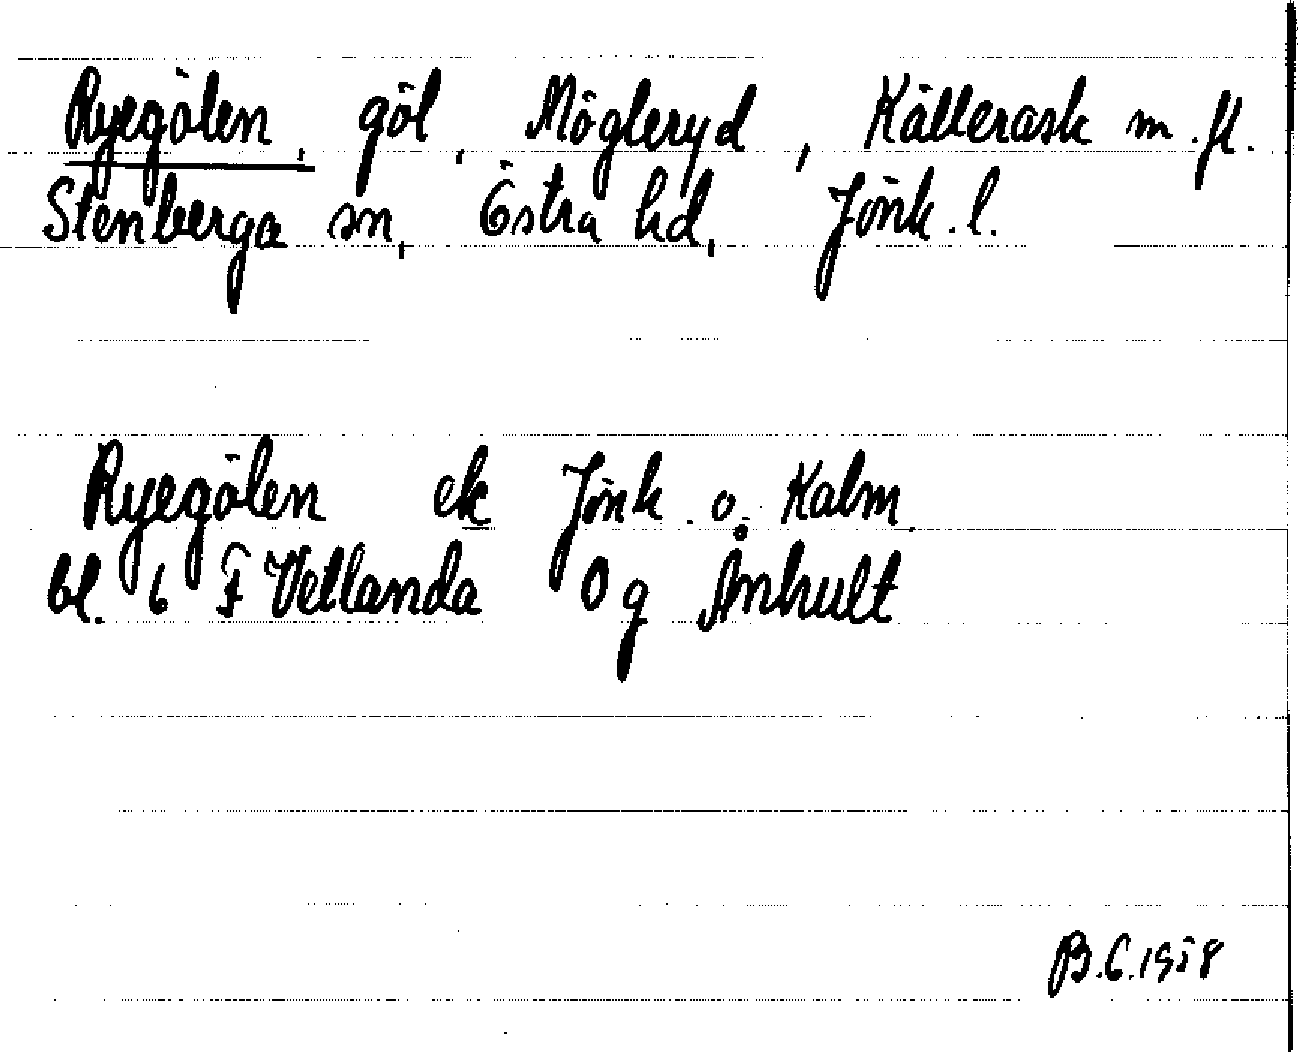 Ryegölen, göl, Mögleryd, Källerask m.fl.
Stenberga sn, Östra hd, Jönk.l.
Ryegölen ek Jönk. o. Kalm.
bl. 6 F Vetlanda 0 g Ånhult
B.C.1958